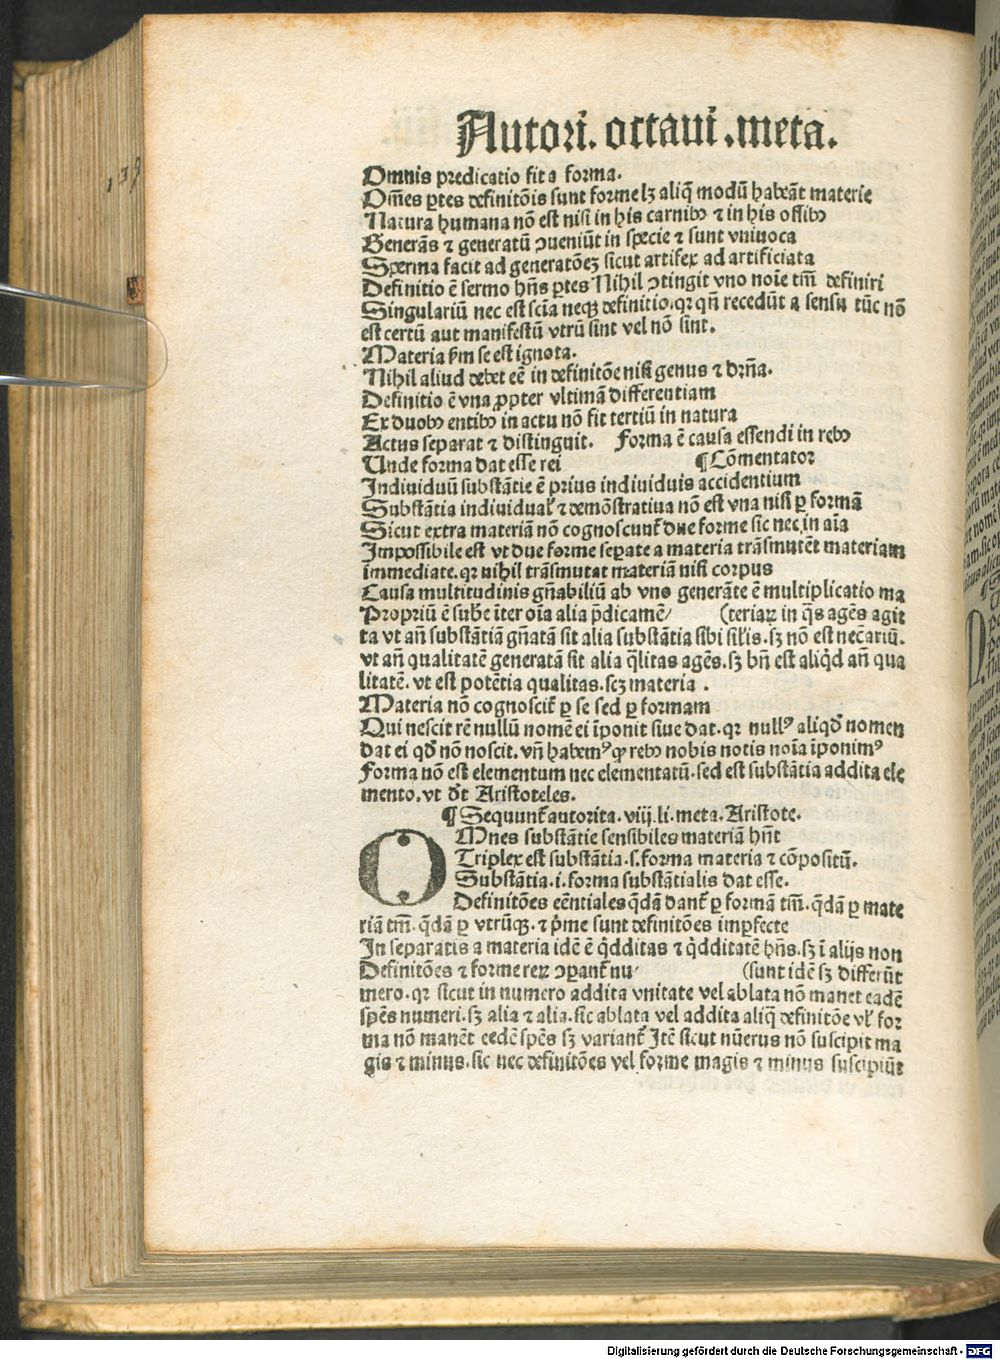 Autori. octaui .meta.
139
Omnis predicatio fit a forma.
Om̄es ꝑtes definitōis sunt forme lꝫ aliq̄ modū habeāt materie
Natura humana nō est nisi in his carnibꝰ ⁊ in his ossibꝰ
Generās ⁊ generatū ꝯueniūt in specie ⁊ sunt vniuoca
Sperma facit ad generatōeꝫ sicut artifex ad artificiata
Definitio ē sermo hn̄s ꝑtes Nihil ꝯtingit vno noīe tm̄ definiri
Singulariū nec est scīa neqꝫ definitio.qꝛ qn̄ recedūt a sensu tūc nō
est certū aut manifestū vtrū sint vel nō sint.
Materia ẜm se est ignota.
Nihil aliud debet eē in definitōe nisi genus ⁊ drn̄a.
Definitio ē vna ꝓpter vltimā differentiam
Ex duobꝰ entibꝰ in actu nō fit tertiū in natura
Actus separat ⁊ distinguit. Forma ē causa essendi in rebꝰ
Unde forma dat esse rei ¶Cōmentator
Indiuiduū substātie ē prius indiuiduis accidentium
Substātia indiuidual' ⁊ demōstratiua nō est vna nisi ꝑ formā
Sicut extra materiā nō cognoscunt᷑ due forme sic nec in aīa
Impossibile est vt due forme seperate a materia trāsmutēt materiam
immediate.qꝛ nihil trāsmutat materiā nisi corpus
Causa multitudinis gn̄abiliū ab vno generāte ē multiplicatio ma
Propriū ē sub̄e īter oīa alia p̄dicamē/ (teriaꝝ in q̄s agēs agit
ta vt an̄ substātiā gn̄atā sit alia substātia sibi sil'is.sꝫ nō est nec̄ariū.
vt an̄ qualitatē generatā sit alia q̄litas agēs.sꝫ bn̄ est aliq̇d an̄ qua
litatē. vt est potētia qualitas.scꝫ materia .
Materia nō cognoscit᷑ ꝑ se sed ꝑ formam
Qui nescit rē nullū nomē ei īponit siue dat.qꝛ nullꝰ aliqd̄ nomen
dat ei qd̄ nō noscit. vn̄ habemꝰ ꝙ rebꝰ nobis notis noīa īponimꝰ
Forma nō est elementum nec elementatū.sed est substātia addita ele
mento.vt dīt Aristoteles.
¶Sequunt᷑ autorita. viij.li.meta.Aristote.
OMnes substātie sensibiles materiā hn̄t
Triplex est substātia.s.forma materia ⁊ cōpositū.
Substātia.i.forma substātialis dat esse.
Definitōes eēntiales q̄dā dant᷑ ꝑ formā tm̄.q̄dā ꝑ mate
riā tm̄.q̄dā ꝑ vtrūqꝫ.⁊ p̄me sunt definitōes imꝑfecte
In separatis a materia idē ē q̇dditas ⁊ q̇dditatē hn̄s.sꝫ ī alijs non
Definitōes ⁊ forme reꝝ ꝯꝑant᷑ nu/ (sunt idē sꝫ differūt
mero.qꝛ sicut in numero addita vnitate vel ablata nō manet eadē
spēs numeri.sꝫ alia ⁊ alia.sic ablata vel addita aliq̄ definitōe vl' for
ma nō manēt eedē spēs sꝫ variant᷑ Itē sicut nūerus nō suscipit ma
gis ⁊ minus.sic nec definitōes vel forme magis ⁊ minus suscipiūt
Digitalisierung gefördert durch die Deutsche Forschungsgemeinschaft - DFG